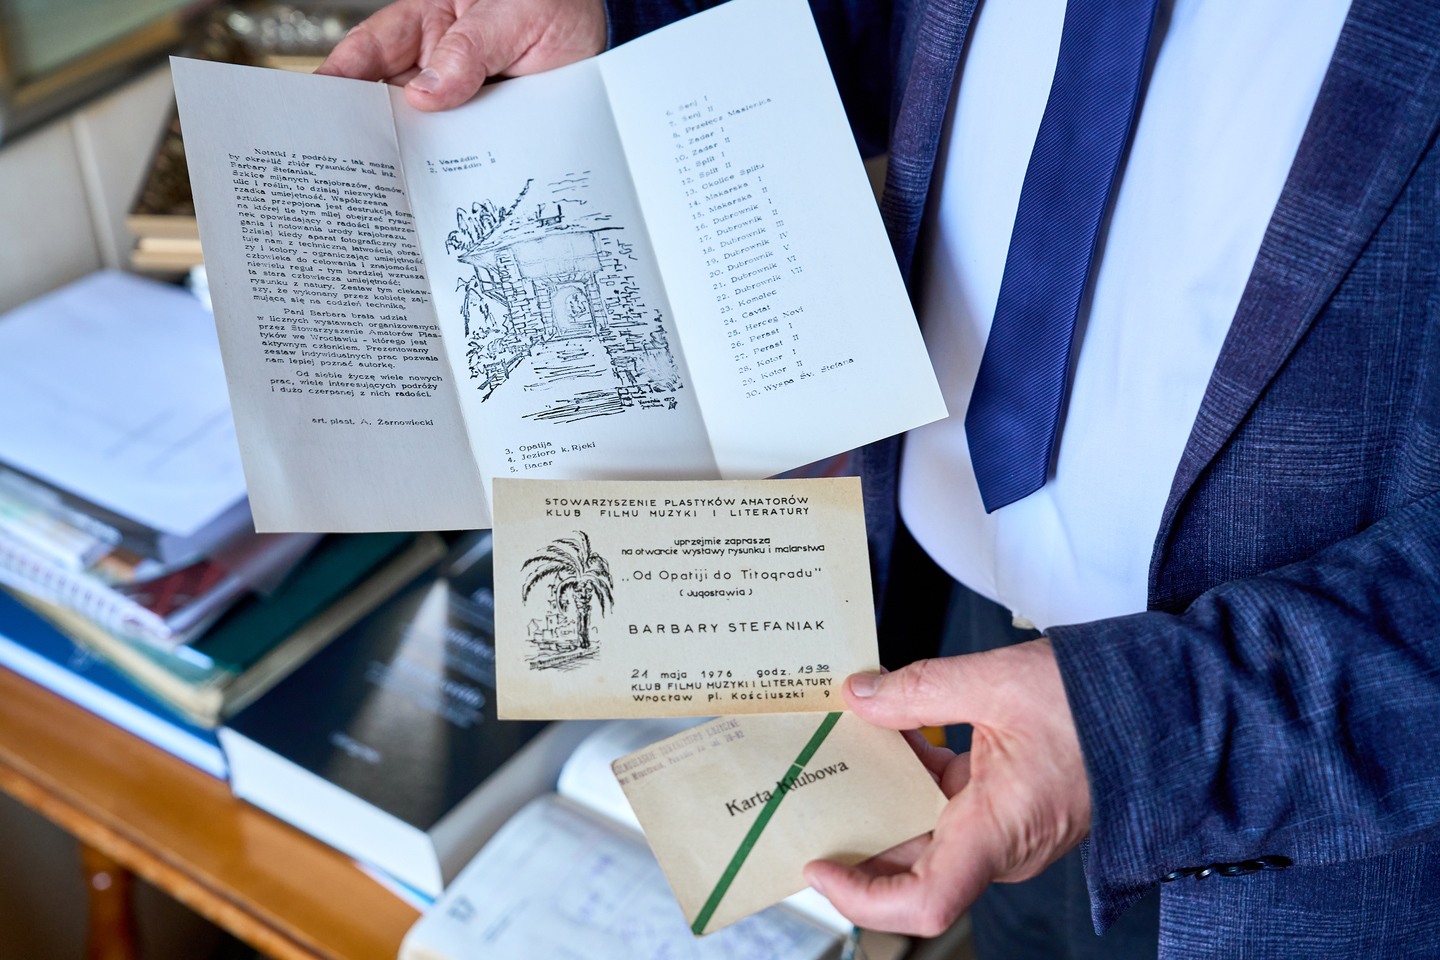 Notatki z podróży - tak można
by określić zbiór rysunków kol. inż.
Barbary Stefaniak.
Szkice mijanych krajobrazów, domów,
ulic i roślin, to dzisiaj niezwykle
rzadka umiejętność. Współczesna
sztuka przepojona jest destrukcją form,
na której tle tym milej obejrzeć rysu-
nek opowiadający o radości spostrze-
gania i notowania urody krajobrazu.
Dzisiaj kiedy aparat fotograficzny no-
tuje nam z techniczną łatwością obra-
zy i kolory - ograniczając umiejętność
człowieka do celowania i znajomości
niewielu reguł - tym bardziej wzrusza
ta stara człowiecza umiejętność:
rysunku z natury. Zestaw tym ciekaw-
szy, że wykonany przez kobietę zaj-
mującą się na codzień techniką.
Pani Barbara brała udział
w licznych wystawach organizowanych
przez Stowarzyszenie Amatorów Plas-
tyków we Wrocławiu - którego jest
aktywnym członkiem. Prezentowany
zestaw indywidualnych prac pozwala
nam lepiej poznać autorkę.
Od siebie życzę wiele nowych
prac, wiele interesujących podróży
i dużo czerpanej z nich radości.
art. plast. A. Żarnowiecki
1. Varaždin I
2. Varaždin II
3. Opatija
4. Jezioro k. Rjeki
5. Bacar
6. Senj I
7. Senj II
8. Przełęcz Maslenica
9. Zadar I
10. Zadar II
11. Split I
12. Split II
13. Okolice Splitu
14. Makarska I
15. Makarska II
16. Dubrownik I
17. Dubrownik II
18. Dubrownik III
19. Dubrownik IV
20. Dubrownik V
21. Dubrownik VI
22. Dubrownik VII
23. Komolec
24. Cavtat
25. Herceg Novi
26. Perast I
27. Perast II
28. Kotor I
29. Kotor II
30. Wyspa Św. Stefana
STOWARZYSZENIE PLASTYKÓW AMATORÓW
KLUB FILMU MUZYKI I LITERATURY
uprzejmie zaprasza
na otwarcie wystawy rysunku i malarstwa
„Od Opatiji do Titogradu"
(Jugosławia)
BARBARY STEFANIAK
21 maja 1976 godz. 19 30
KLUB FILMU MUZYKI I LITERATURY
Wrocław pl. Kościuszki 9
Karta Klubowa